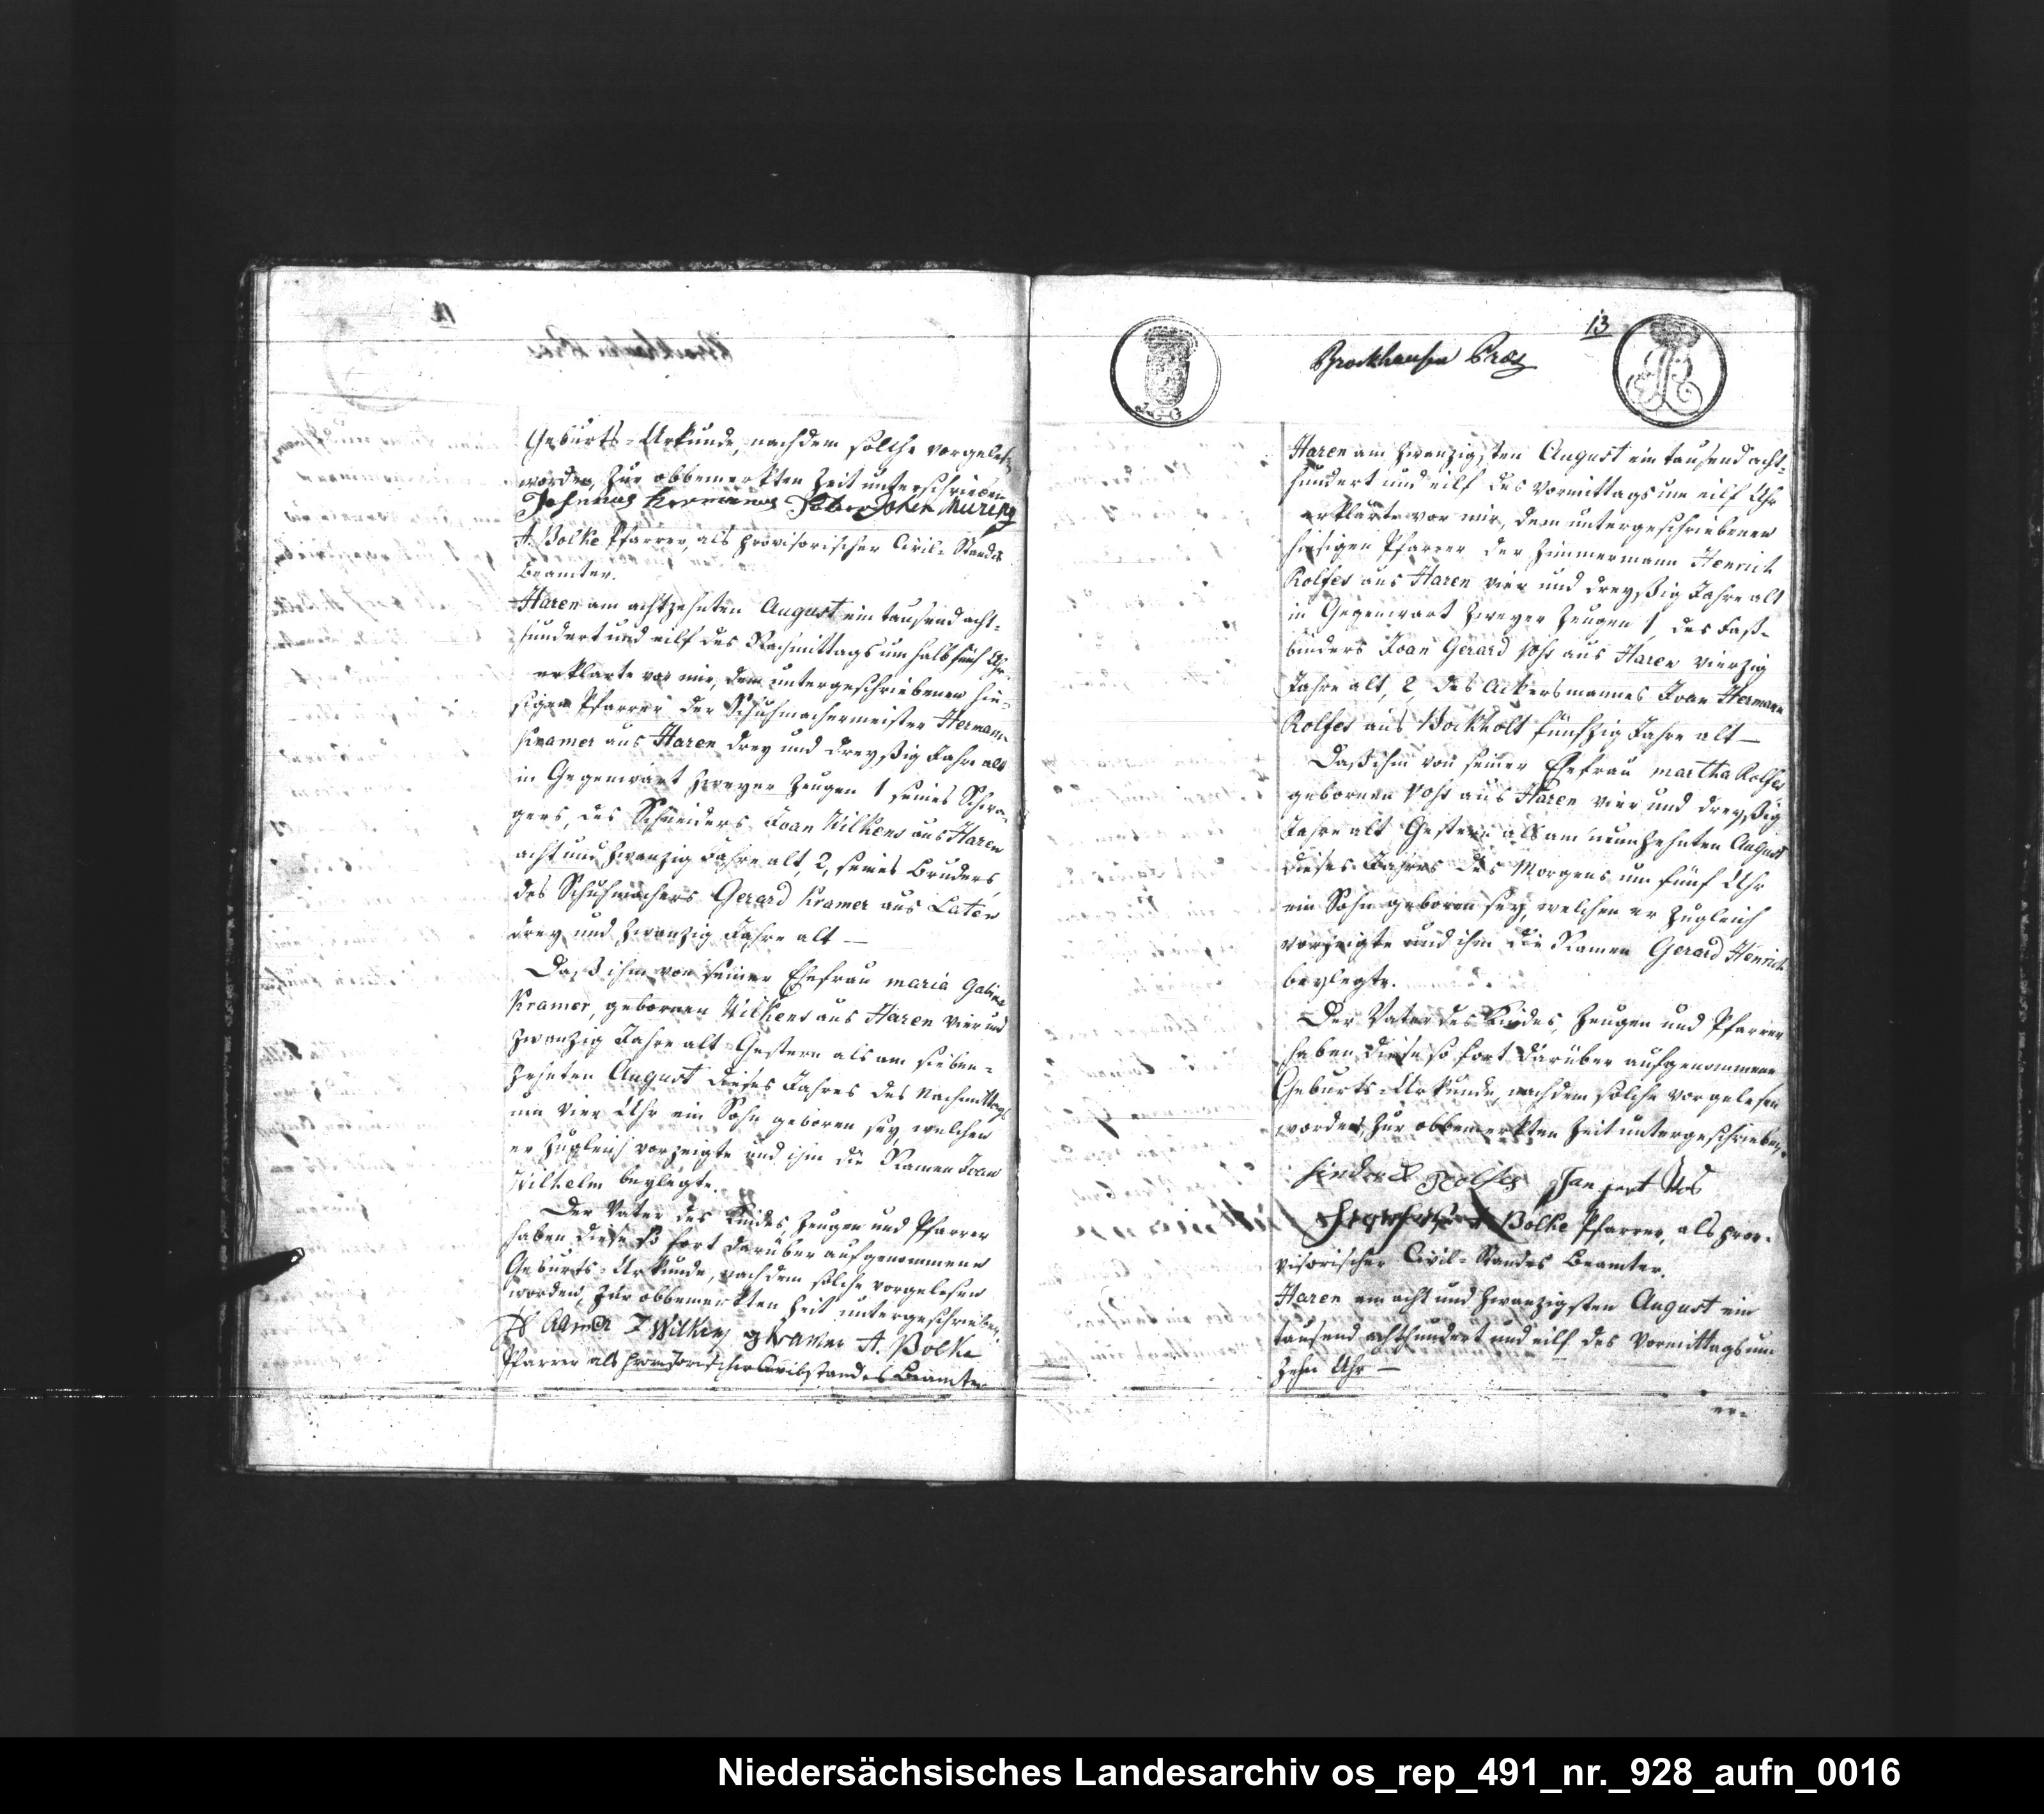 Geburts-Urkunde, nachdem solche vorgelesen
worden, zur obbemerkten Zeit unterschrieben
Johannes Hermannus
A. Bolke Pfarrer, als provisorischer Civil-Standes
Beamter.
Haren am achtzehnten August ein tausend acht-
hundert und eilf des Nachmittags um halb fünf Uhr
erklärte vor mir, dem untergeschriebenen hie-
sigen Pfarrer der Schuhmachermeister Hermann
Kramer aus Haren drey und dreyßig Jahre alt
in Gegenwart zweyer Zeugen 1 seines Schwa-
gers, des Schneiders Joan Wilkens aus Haren
acht und zwanzig Jahre alt, 2, seines Bruders,
des Schuhmachers Gerard Kramer aus Laten
drey und zwanzig Jahre alt —
Daß ihm von seiner Ehefrau Maria Gabina
Kramer, gebornen Wilkens aus Haren vier und
zwanzig Jahre alt Gestern als am sieben-
zehnten August dieses Jahres des Nachmittags
um vier Uhr ein Sohn geboren sey, welchen
er zugleich vorzeigte und ihm die Namen Joan
Wilhelm beylegte.
Der Vater des Kindes, Zeugen und Pfarrer
haben diese so fort darüber aufgenommene
Geburts-Urkunde, nachdem solche vorgelesen
worden, zur obbemerkten Zeit untergeschrieben.
H Kramer J Wilkens g Kramer A. Bolke
Pfarrer als provisorischer Civilstandes Beamter
13
Brockhausen Präs
Haren am zwanzigsten August ein tausend acht-
hundert und eilf des Vormittags um eilf Uhr
erklärte vor mir, dem untergeschriebenen
hiesigen Pfarrer der Zimmermann Henrich
Rolfes aus Haren vier und dreyßig Jahre alt
in Gegenwart zweyer Zeugen 1, des Faß-
binders Joan Gerard Vohs aus Haren vierzig
Jahre alt, 2, des Ackersmannes Joan Hermann
Rolfes aus Bockholt fünfzig Jahre alt —
Daß ihm von seiner Ehefrau Martha Rolfes
gebornen Vohs aus Haren vier und dreyßig
Jahre alt Gestern als am neunzehnten August
dieses Jahres des Morgens um fünf Uhr
ein Sohn geboren sey, welchen er zugleich
vorzeigte und ihm die Namen Gerard Henrich
beylegte.
Der Vater des Kindes, Zeugen und Pfarrer
haben diese so fort darüber aufgenommene
Geburts-Urkunde, nachdem solche vorgelesen
worden zur obbemerkten Zeit untergeschrieben.
Hinderk Rolfes Jan gert Vos
A Bolke Pfarrer, als pro-
visorischer Civil-Standes Beamter.
Haren am acht und zwanzigsten August ein
tausend achthundert und eilf des Vormittags um
zehn Uhr —
er-
Niedersächsisches Landesarchiv os_rep_491_nr._928_aufn_0016